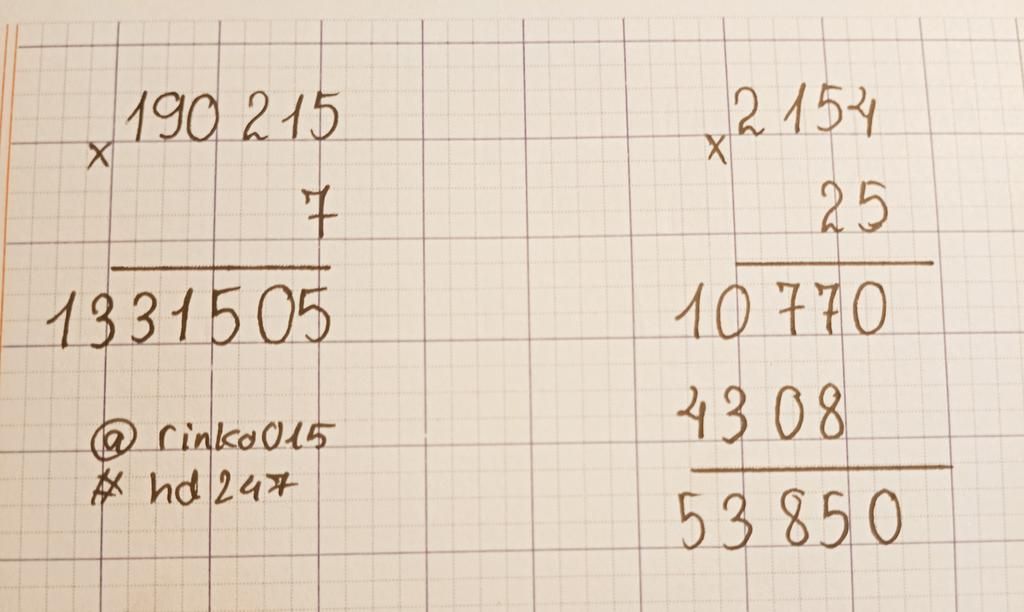 190 215
x
7
1331505
@ rinko015
# hd247
2 154
x
25
10 770
43 08
53 850